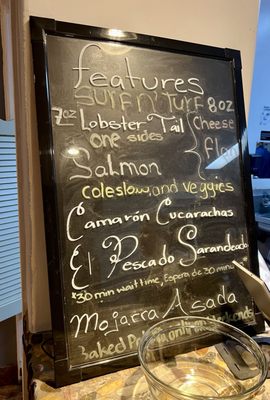 features
Surf n' Turf 8oz
7oz Lobster Tail { Cheese
one sides Flan
Salmon
coleslaw, and veggies
Camarón Cucarachas
El Pescado Sarandeado
*30 min wait time, Espera de 30 min
Mojarra Asada
Baked only on weekends